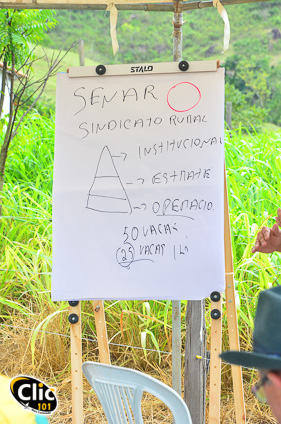 STALO
SENAR
SINDICATO RURAL
INSTITUCIONAL
ESTRATE
OPERACIO
50 VACAS
25 VACAS
Clic
101